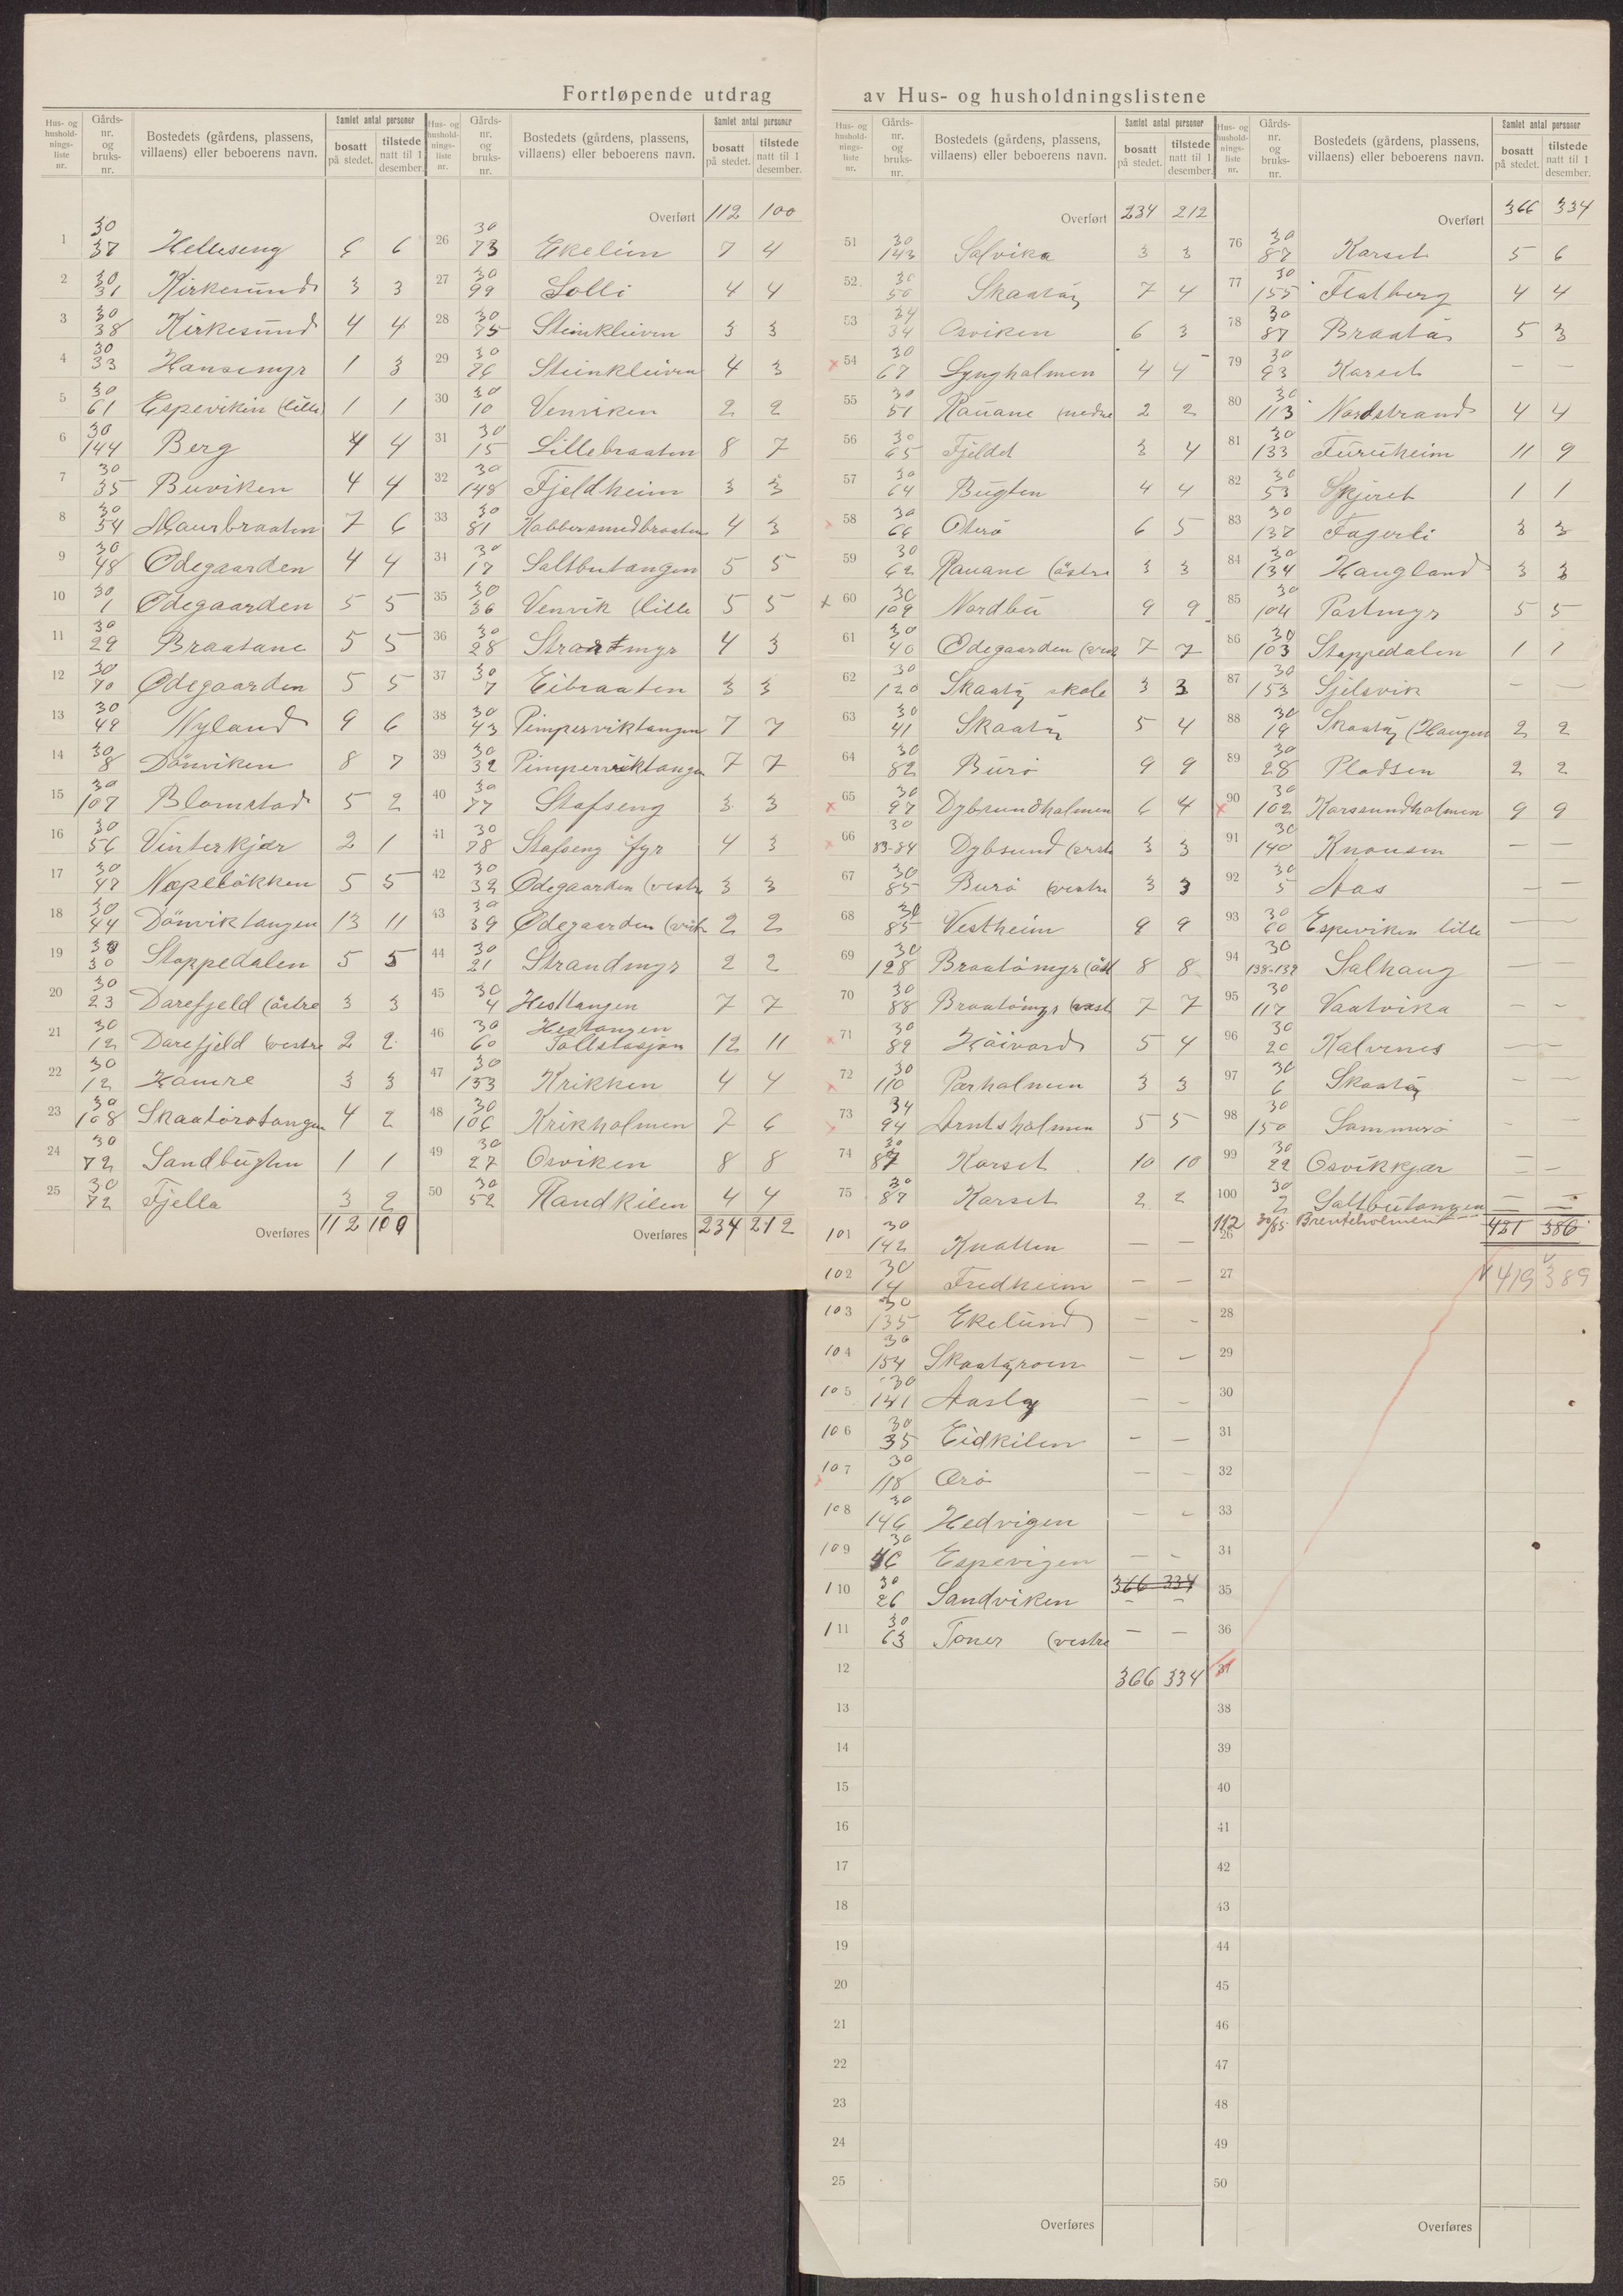 Fortløpende utdrag av Hus- og husholdningslistene
Hus- og hushold-nings-liste nr. Gårds-nr. og bruks-nr. Bostedets (gårdens, plassens, villaens) eller beboerens navn. Samlet antal personer bosatt på stedet. tilstede natt til 1 desember.
1 30/37 Helleseng 6 6
2 30/31 Kirkesund 3 3
3 30/38 Kirkesund 4 4
4 30/33 Hansemyr 1 3
5 30/61 Espevikin (lille) 1 1
6 30/144 Berg 4 4
7 30/35 Buviken 4 4
8 30/54 Maurbraaten 7 6
9 30/48 Ødegaarden 4 4
10 30/1 Ødegaarden 5 5
11 30/29 Braatane 5 5
12 30/70 Ødegaarden 5 5
13 30/49 Nyland 9 6
14 30/8 Dönviken 8 7
15 30/107 Blomstad 5 2
16 30/56 Vinterkjær 2 1
17 30/47 Næpelökken 5 5
18 30/44 Dönviktangen 13 11
19 30/30 Stoppedalen 5 5
20 30/23 Darefjeld (östre 3 3
21 30/12 Darefjeld (vestre 2 2
22 30/12 Hamre 3 3
23 30/108 Skaatörotangen 4 2
24 30/72 Sandbugten 1 1
25 30/72 Fjella 3 2
Overføres 112 100
Hus- og hushold-nings-liste nr. Gårds-nr. og bruks-nr. Bostedets (gårdens, plassens, villaens) eller beboerens navn. Samlet antal personer bosatt på stedet. tilstede natt til 1 desember.
Overført 112 100
26 30/73 Ekelien 7 4
27 30/99 Solli 4 4
28 30/75 Steinkleiven 3 3
29 30/76 Steinkleiven 4 3
30 30/10 Venviken 2 2
31 30/15 Lillebraaten 8 7
32 30/148 Fjeldheim 3 3
33 30/81 Kobbersmedbraaten 4 3
34 30/17 Saltbutangen 5 5
35 30/36 Venvik (lille 5 5
36 30/28 Strandmyr 4 3
37 30/7 Eibraaten 3 3
38 30/43 Pimperviktangen 7 7
39 30/32 Pimperviktangen 7 7
40 30/77 Stafseng 3 3
41 30/78 Stafseng fyr 4 3
42 30/32 Ødegaarden (vestre 3 3
43 30/39 Ødegaarden 2 2
44 30/21 Strandmyr 2 2
45 30/4 Hesttangen 7 7
46 30/60 Hestangen Tollstasjon 12 11
47 30/153 Krikken 4 4
48 30/106 Krikholmen 7 6
49 30/27 Osviken 8 8
50 30/52 Randkilen 4 4
Overføres 234 212
Hus- og hushold-nings-liste nr. Gårds-nr. og bruks-nr. Bostedets (gårdens, plassens, villaens) eller beboerens navn. Samlet antal personer bosatt på stedet. tilstede natt til 1 desember.
Overført 234 212
51 30/143 Solvika 3 3
52 30/50 Skaatöy 7 4
53 34/34 Osviken 6 3
x 54 30/67 Lyngholmen 4 4
55 30/51 Rauane (nedre 2 2
56 30/65 Fjeldet 3 4
57 30/64 Bugten 4 4
x 58 30/66 Oterö 6 5
59 30/62 Rauane (östre 3 3
x 60 30/109 Nordbu 9 9
61 30/40 Ødegaarden 7 7
62 30/120 Skaatöy skole 3 3
63 30/41 Skaatöy 5 4
64 30/82 Burö 9 9
x 65 30/97 Dybsundholmen 6 4
x 66 30/83-84 Dybsund 3 3
67 30/85 Burö (vestre 3 3
68 30/85 Vestheim 9 9
69 30/128 Braatömyr (öst 8 8
70 30/88 Braatömyr (vest 7 7
x 71 30/89 Höivard 5 4
x 72 30/110 Parholmen 3 3
x 73 34/94 Arntsholmen 5 5
74 30/87 Korset 10 10
75 30/87 Korset 2 2
101 30/142 Knatten — —
102 30/14 Fredheim — —
103 30/135 Ekelund — -
104 30/154 Skaatöyroen — —
105 30/141 Aasly — -
106 30/35 Eidkilen — —
x 107 30/118 Ærö — -
108 30/146 Hedvigen — -
109 30/46 Espevigen — -
366 334
110 30/26 Sandviken — —
111 30/63 Toner (vestre — —
12 366 334
13
14
15
16
17
18
19
20
21
22
23
24
25
Overføres
Hus- og hushold-nings-liste nr. Gårds-nr. og bruks-nr. Bostedets (gårdens, plassens, villaens) eller beboerens navn. Samlet antal personer bosatt på stedet. tilstede natt til 1 desember.
Overført 366 334
76 30/87 Korset 5 6
77 30/155 Flatberg 4 4
78 30/87 Braatö 5 3
79 30/93 Korset — —
80 30/113 Nordstrand 4 4
81 30/133 Furuheim 11 9
82 30/53 Skjæret 1 1
83 30/137 Fagerli 3 3
84 30/134 Haugland 3 3
85 30/104 Postmyr 5 5
86 30/103 Stoppedalen 1 1
87 30/153 Sjelsvik — —
88 30/19 Skaatöy (Haugen 2 2
89 30/28 Pladsen 2 2
x 90 30/102 Korssundholmen 9 9
91 30/140 Knausen — —
92 30/5 Aas — —
93 30/60 Espeviken lille — —
94 30/138-139 Salhaug — —
95 30/117 Vaatvika — -
96 30/20 Kalvenes — —
97 30/6 Skaatöy — —
98 30/150 Sommerö — —
99 30/22 Osvikkjær — —
100 30/2 Saltbutangen — —
112 30/85 Brenteholmen — —
26 421 386
27 419 389
28
29
30
31
32
33
34
35
36
37
38
39
40
41
42
43
44
45
46
47
48
49
50
Overføres